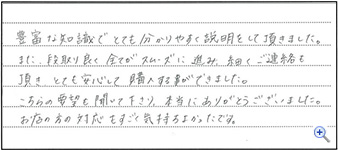 豊富な知識でとても分かりやすく説明をして頂きました。
また、段取り良く全てがスムーズに進み、細くご連絡も
頂きとても安心して購入する事ができました。
こちらの要望も聞いて下さり、本当にありがとうございました。
お店の方の対応もすごく気持ちよかったです。